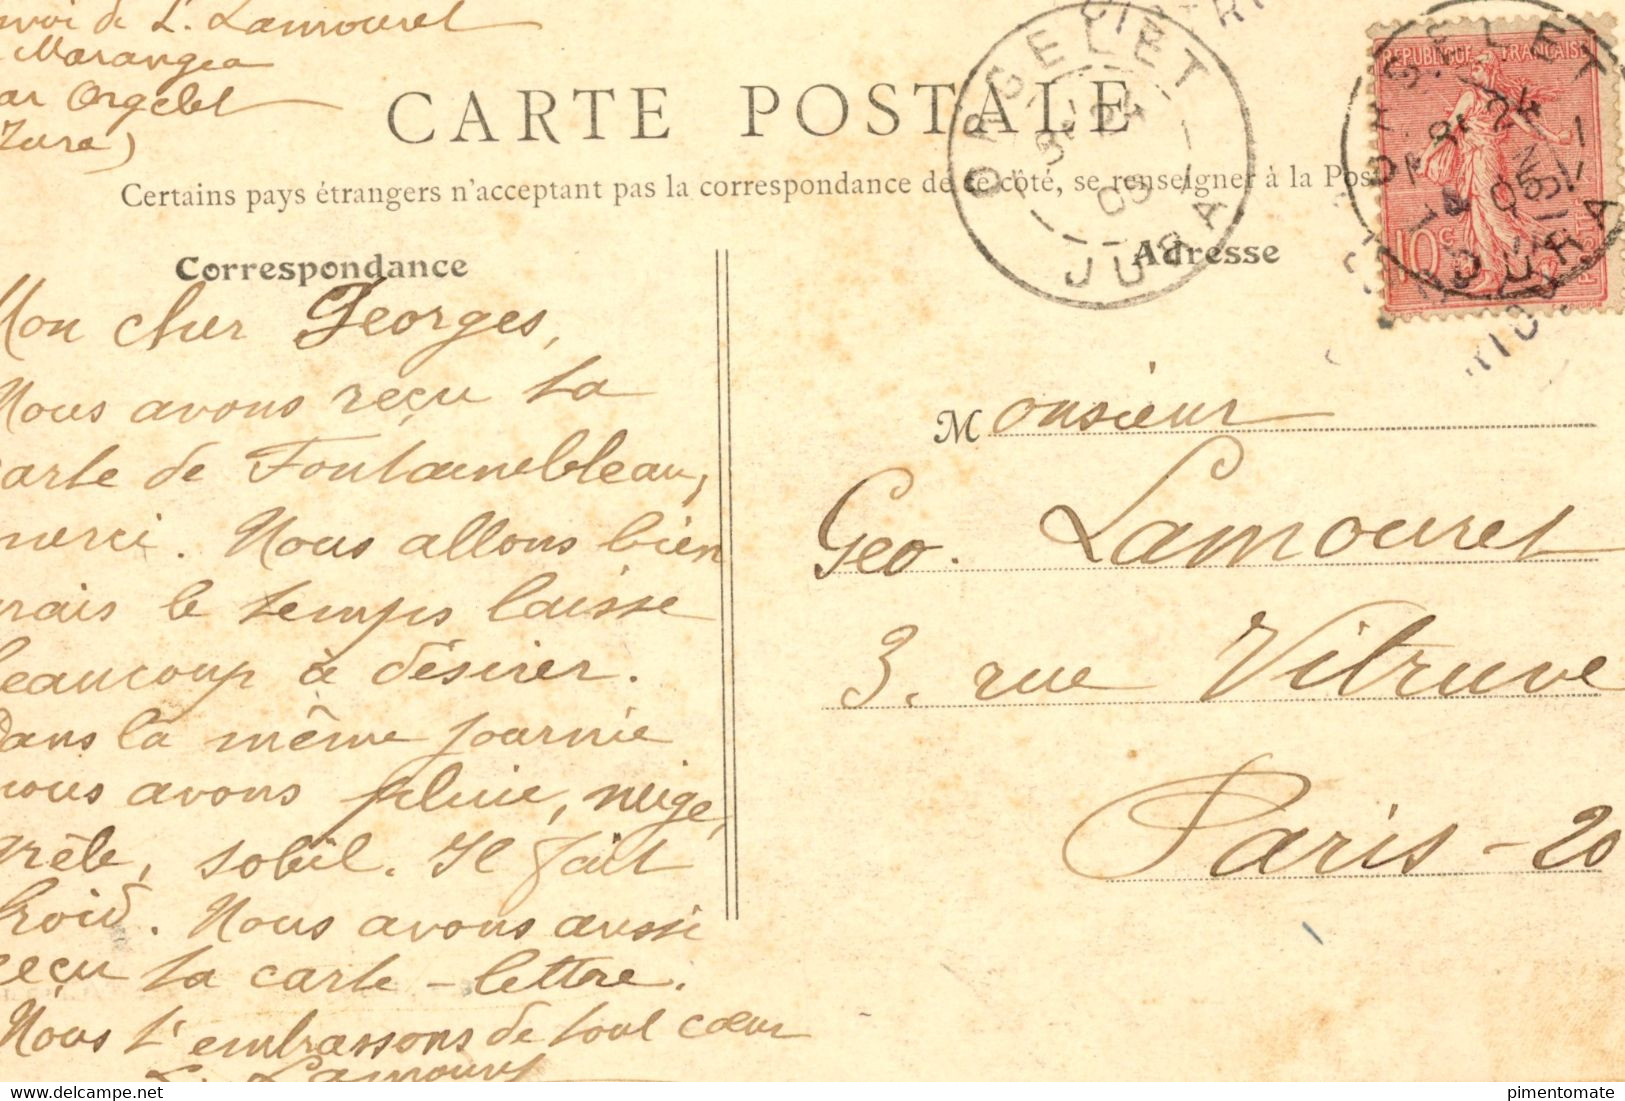 nvoi de L. Lamouret
Marangea
ar Orgelet
Jura)
CARTE POSTALE
Certains pays étrangers n'acceptant pas la correspondance de ce côté, se renseigner à la Pos
ORGELET
24
05
JURA
ORGELET
24
05
JURA
REPUBLIQUE FRANÇAISE
10c
POSTES
Correspondance
Adresse
Mon cher Georges,
Nous avons reçu ta
carte de Fontainebleau,
merci. Nous allons bien
mais le temps laisse
beaucoup à désirer.
Dans la même journée
nous avons pluie, neige,
grêle, soleil. Il fait
froid. Nous avons aussi
reçu ta carte-lettre.
Nous t'embrassons de tout cœur
L. Lamouret
Monsieur
Geo. Lamouret
3, rue Vitruve
Paris-20
pimentomate